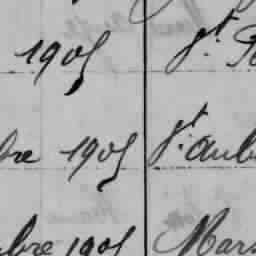 1905 St.
bre 1905 St. Aub
bre 1905 Mars